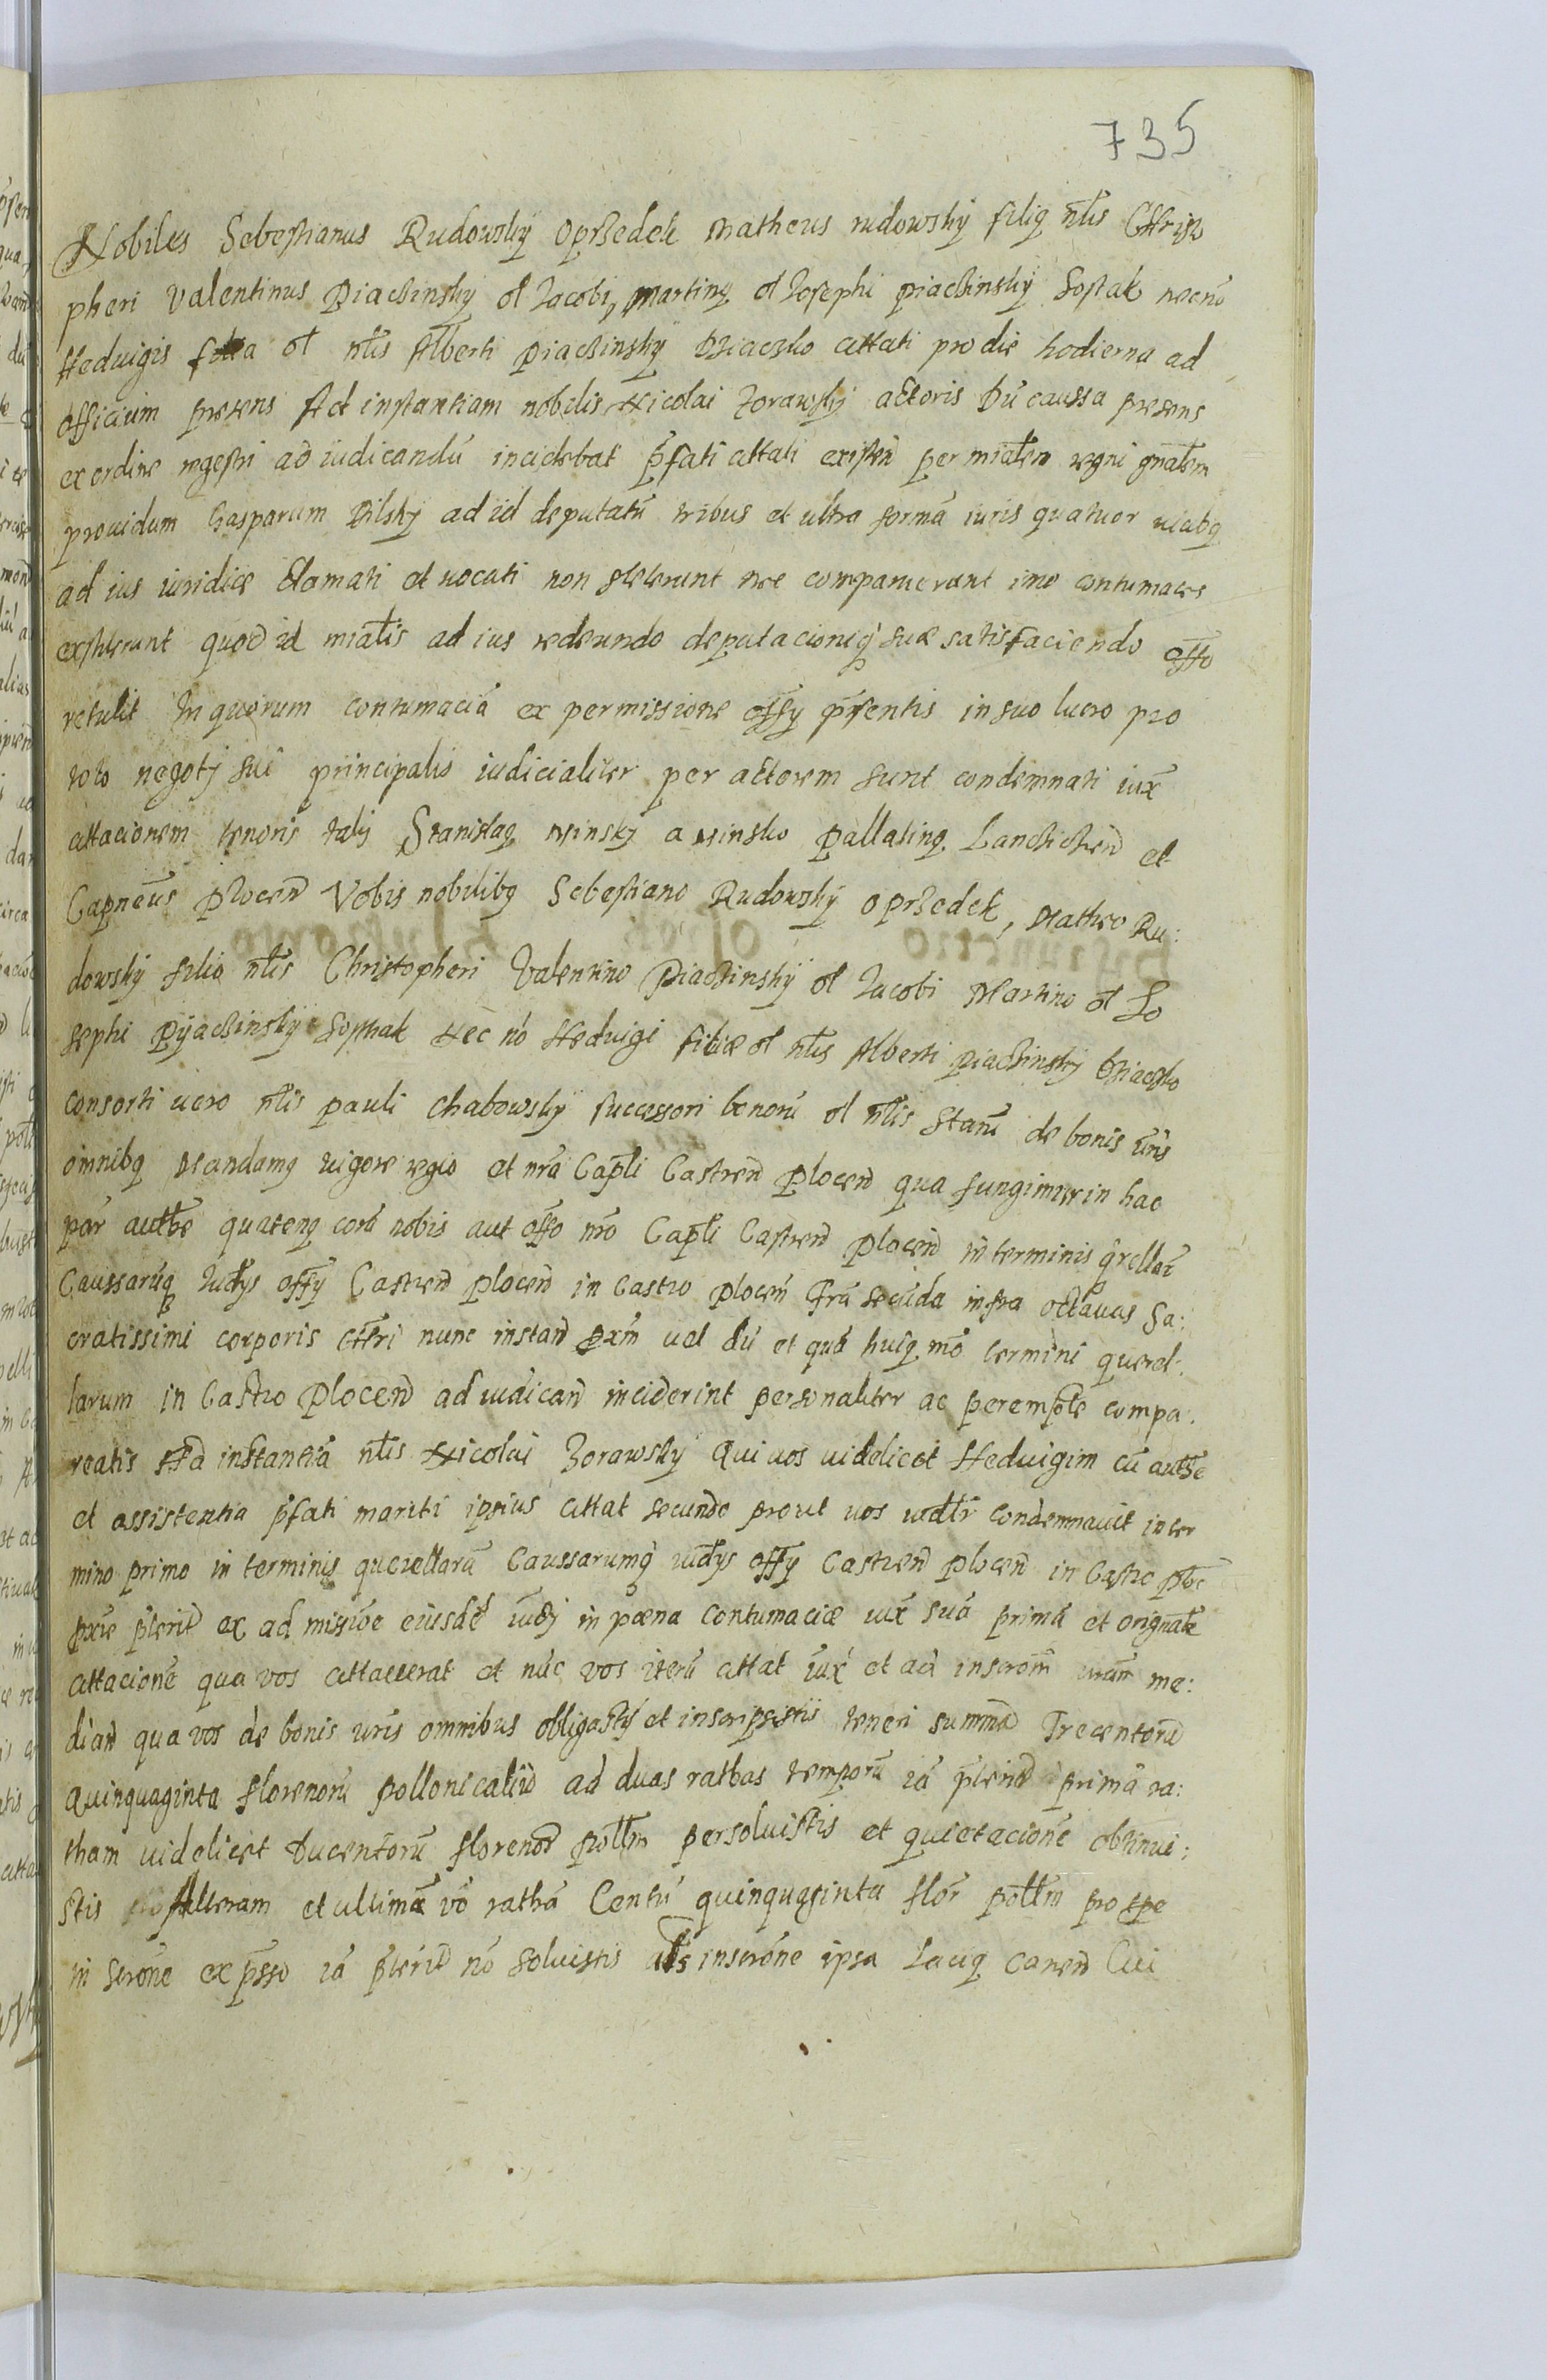 735
Nobiles Sebestianus Rudowsky Oprzedek Matheus rudowsky filiq nłis Christo
pheri Valentinus Piaczinsky ol Jacobi, Martinq ol Josephi piaczinsky Sostak necnō
Heduigis filia ol nłis Alberti Piaczinsky cittati pro die hodierna ad
officium presens Ad instantiam nobilis Nicolai Zorawsky actoris Dū caussa presens
ex ordine regestri ad iudicandū incidebat p̄fati cittati existen̄ per miałem regni gn̄alem
prouidum Casparum Pilsky ad id deputatū tribus et ultra forma iuris quatuor uicibq
ad ius iuridice clamati et uocati non steterunt nec comparuerunt imo contumaces
extiterunt quod id miałis ad ius redeundo deputacioniq suæ satisfaciendo offo
retulit In quorum contumaciā ex permissione offy p̄sentis in suo lucro pro
toto negoty sui principalis iudicialiter per actorem sunt condemnati iux̄
cittacionem tenoris talis Stanislaq Minsky a Minsko Pallatinq Lancicien̄ et
Capneūs Plocen̄ Vobis nobilibq Sebestiano Rudowsky oprzedek, Matheo Ru:
dowsky filio nłis Christopheri Valentino Piaczinsky ol Jacobi Martino ol Jo
sephi Pyaczinsky Sosthak Nec nō Heduigi filiæ ol nłis Alberti piaczinsky
consorti uero nłis pauli Chabowsky successori bonorū ol nłis Stani de bonis ūris
omnibq Mandamq uigore regio et nrā Capłi Castren̄ Plocen̄ qua fungimur in hac
par autłe quatenq corā nobis aut offo nrō Capłi Castren̄ Plocen̄ in terminis q̄rellar̄
Caussarūq Iudys offy Castren̄ Plocen̄ in Castro Plocen̄ fr̄a secūda infra octauas Sa:
cratissimi corporis Chri nunc instan̄ prxm̄ uel dū et quā huiq mōi termini querel:
larum in Castro Plocen̄ ad iudican̄ inciderint personaliter ac peremp̄te compa:
reatis Ad instantiā nłis Nicolai Zorawsky Qui uos uidelicet Heduigim cū autłe
et assistentia p̄fati mariti ipsius cittat secundo prout uos iudłr condemnauit in ter
mino primo in terminis querellarū Caussarumq iudys offy Castren̄ Plocen̄ in Castro ploc
prxe p̄terit̄ ex ad missiōe eiusdē iudy in pœna Contumaciæ iux̄ suā primā et orignałe
cittacionē qua vos cittauerat et nūc vos iterū cittat iux̄ et ad inscrom̄ uram me:
dian̄ qua vos de bonis uris omnibus obligastis et inscripsistis teneri summā Trecentorū
Quinquaginta florenorū pollonicaliū ad duas rathas temporū iā p̄terit̄ primā ra:
tham uidelicet Ducentorū florenor̄ połłm persoluistis et quietacionē obtinui:
stis Alteram et ultimā vō rathā Centū quinquaginta flor̄ połłm pro tpe
in scrōne exp̄sso iā p̄terit̄ nō soluistis als inscrōne ipsa Laciq caren̄ Cui